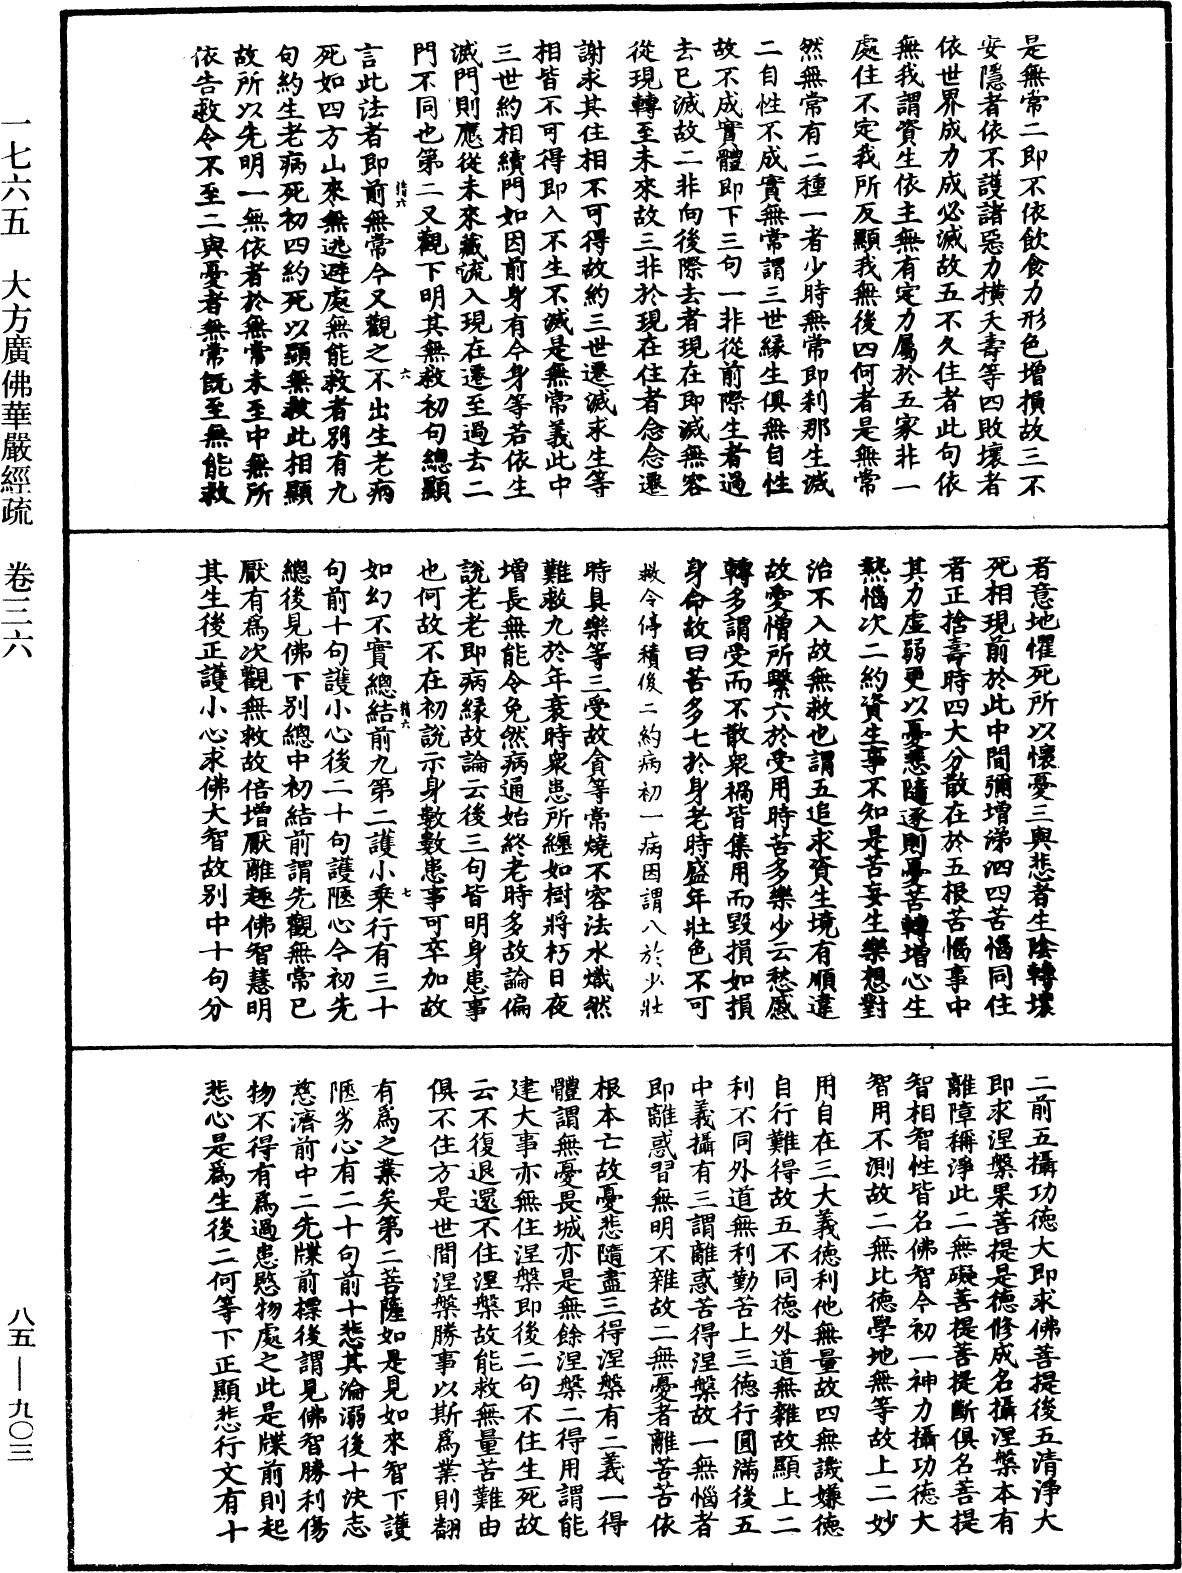 是無常二即不依飲食力形色增損故三不
安隱者依不護諸惡力橫夭壽等四敗壞者
依世界成力成必滅故五不久住者此句依
無我謂資生依主無有定力屬於五家非一
處住不定我所反顯我無後四何者是無常
然無常有二種一者少時無常即刹那生滅
二自性不成實無常謂三世緣生俱無自性
故不成實體即下三句一非從前際生者過
去已滅故二非向後際去者現在即滅無容
從現轉至未來故三非於現在住者念念遷
謝求其住相不可得故約三世遷滅求生等
相皆不可得即入不生不滅是無常義此中
三世約相續門如因前身有今身等若依生
滅門則應從未來藏流入現在遷至過去二
門不同也第二又觀下明其無救初句總顯
言此法者即前無常今又觀之不出生老病
死如四方山來無逃避處無能救者別有九
句約生老病死初四約死以顯無救此相顯
故所以先明一無依者於無常未至中無所
依告救令不至二與憂者無常既至無能救
者意地懼死所以懷憂三與悲者生陰轉壞
死相現前於此中間彌增涕泗四苦惱同住
者正捨壽時四大分散在於五根苦惱事中
其力虛弱更以憂悲隨逐則憂苦轉增心生
熱惱次二約資生事不知是苦妄生樂想對
治不入故無救也謂五追求資生境有順違
故愛憎所繫六於受用時苦多樂少云愁慼
轉多謂受而不散眾禍皆集用而毀損如損
身命故曰苦多七於身老時盛年壯色不可
救令停積後二約病初一病因謂八於少壯
時具樂等三受故貪等常燒不容法水熾然
難救九於年衰時眾患所纏如樹將朽日夜
增長無能令免然病通始終老時多故論偏
說老老即病緣故論云後三句皆明身患事
也何故不在初說示身數數患事可卒加故
如幻不實總結前九第二護小乘行有三十
句前十句護小心後二十句護陿心今初先
總後見佛下別總中初結前謂先觀無常已
厭有為次觀無救故倍增厭離趣佛智慧明
其生後正護小心求佛大智故別中十句分
二前五攝功德大即求佛菩提後五清淨大
即求涅槃果菩提是德修成名攝涅槃本有
離障稱淨此二無礙菩提菩提斷俱名菩提
智相智性皆名佛智今初一神力攝功德大
智用不測故二無比德學地無等故上二妙
用自在三大義德利他無量故四無譏嫌德
自行難得故五不同德外道無雜故顯上二
利不同外道無利勤苦上三德行圓滿後五
中義攝有三謂離惑苦得涅槃故一無惱者
即離惑習無明不雜故二無憂者離苦苦依
根本亡故憂悲隨盡三得涅槃有二義一得
體謂無憂畏城亦是無餘涅槃二得用謂能
建大事亦無住涅槃即後二句不住生死故
云不復退還不住涅槃故能救無量苦難由
俱不住方是世間涅槃勝事以斯為業則翻
有為之業矣第二菩薩如是見如來智下護
陿劣心有二十句前十悲其淪溺後十決志
慈濟前中二先牒前標後謂見佛智勝利傷
物不得有為過患愍物處之此是牒前則起
悲心是為生後二何等下正顯悲行文有十
精六
六
精六
七
一七六五　大方廣佛華嚴經疏　卷三六
八五—九〇三